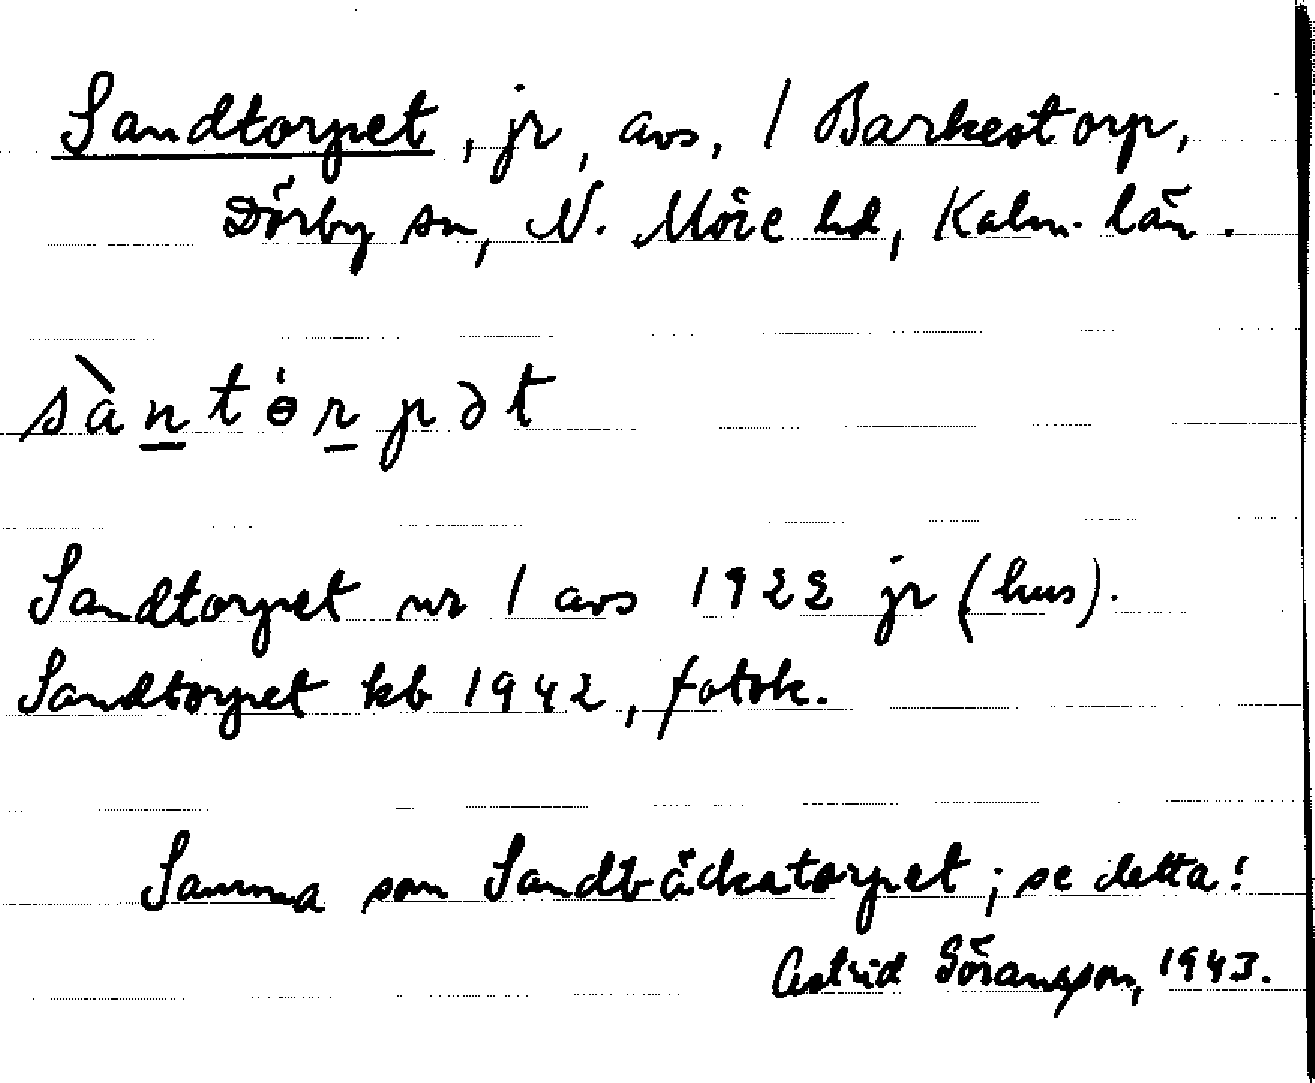 Sandtorpet, jr, avs, 1 Barkestorp,
Dörby sn, N. Möre hd, Kalm. län.
sàntɵ̇rpət
Sandtorpet nr 1 avs 1922 jr (hus).
Sandtorpet kb 1942, fotok.
Samma som Sandbäckatorpet; se detta!
Astrid Göransson, 1943.